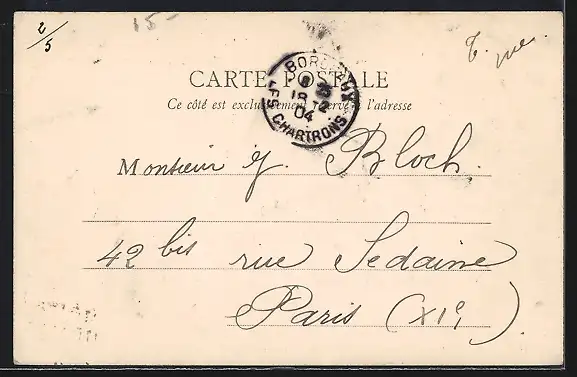 2/5
15-
CARTE POSTALE
Ce côté est exclusivement réservé à l'adresse
BORDEAUX
18
04
LES CHARTRONS
Monsieur J. Bloch.
42 bis rue Sedaine
Paris (XIe)